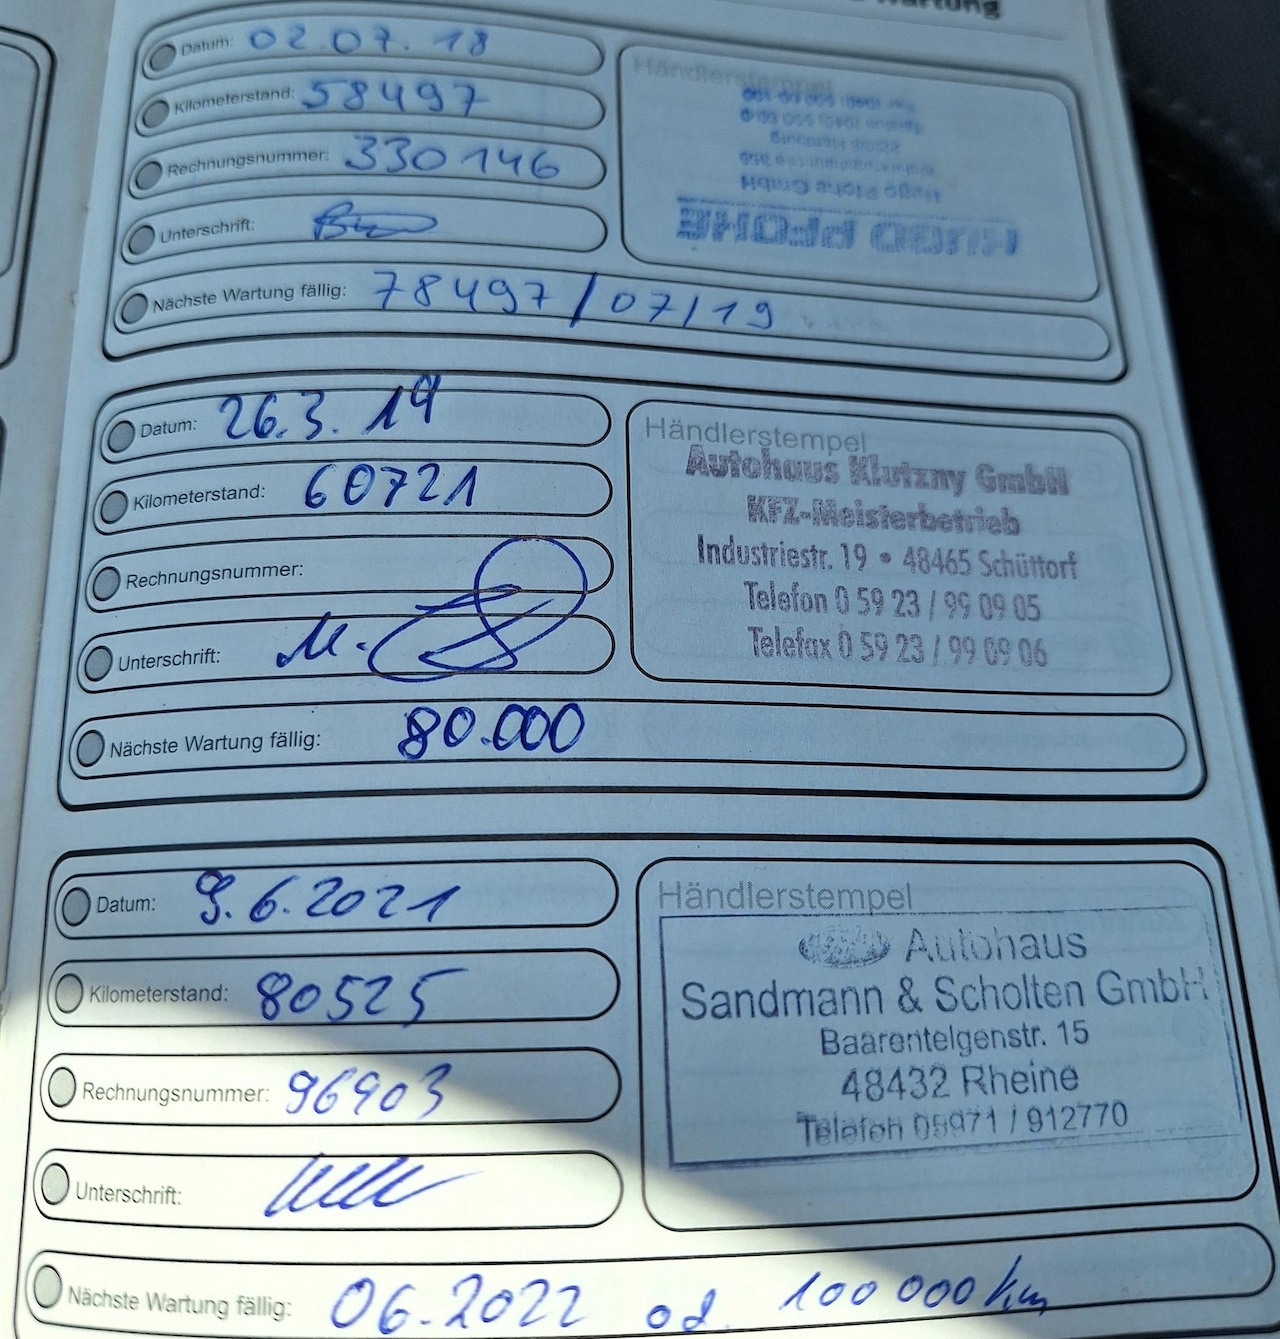 Wartung
Datum: 02.07.18
Kilometerstand: 58497
Rechnungsnummer: 330146
Unterschrift:
Nächste Wartung fällig: 78497/07/19
Händlerstempel
Hugo Pfohe GmbH
HUGO PFOHE
Datum: 26.3.19
Kilometerstand: 60721
Rechnungsnummer:
Unterschrift:
Nächste Wartung fällig: 80.000
Händlerstempel
Autohaus Klutzny GmbH
KFZ-Meisterbetrieb
Industriestr. 19 • 48465 Schüttorf
Telefon 0 59 23 / 99 09 05
Telefax 0 59 23 / 99 09 06
Datum: 9.6.2021
Kilometerstand: 80525
Rechnungsnummer: 96903
Unterschrift:
Nächste Wartung fällig: 06.2022 od. 100 000 km
Händlerstempel
Autohaus
Sandmann & Scholten GmbH
Baarentelgenstr. 15
48432 Rheine
Telefon 05971 / 912770